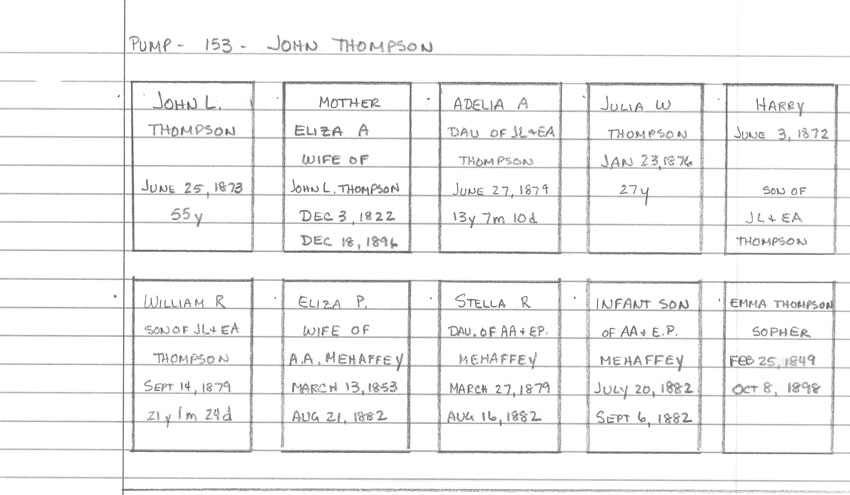 PUMP - 153 - JOHN THOMPSON
JOHN L.
THOMPSON
JUNE 25, 1873
55 y
MOTHER
ELIZA A
WIFE OF
JOHN L. THOMPSON
DEC 3, 1822
DEC 18, 1896
ADELIA A
DAU OF JL & EA
THOMPSON
JUNE 27, 1879
13y 7m 10d
JULIA W
THOMPSON
JAN 23, 1876
27 y
HARRY
JUNE 3, 1872
SON OF
JL & EA
THOMPSON
WILLIAM R
SON OF JL & EA
THOMPSON
SEPT 14, 1879
21 y 1m 29d
ELIZA P.
WIFE OF
A.A. MEHAFFEY
MARCH 13, 1853
AUG 21, 1882
STELLA R
DAU. OF AA & EP.
MEHAFFEY
MARCH 27, 1879
AUG 16, 1882
INFANT SON
OF AA & E.P.
MEHAFFEY
JULY 20, 1882
SEPT 6, 1882
EMMA THOMPSON
SOPHER
FEB 25, 1849
OCT 8, 1898